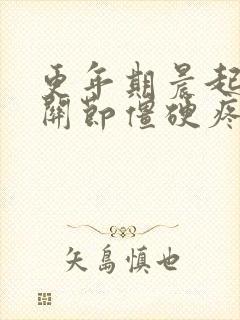 更年期晨起
關節僵硬疼
矢島慎也